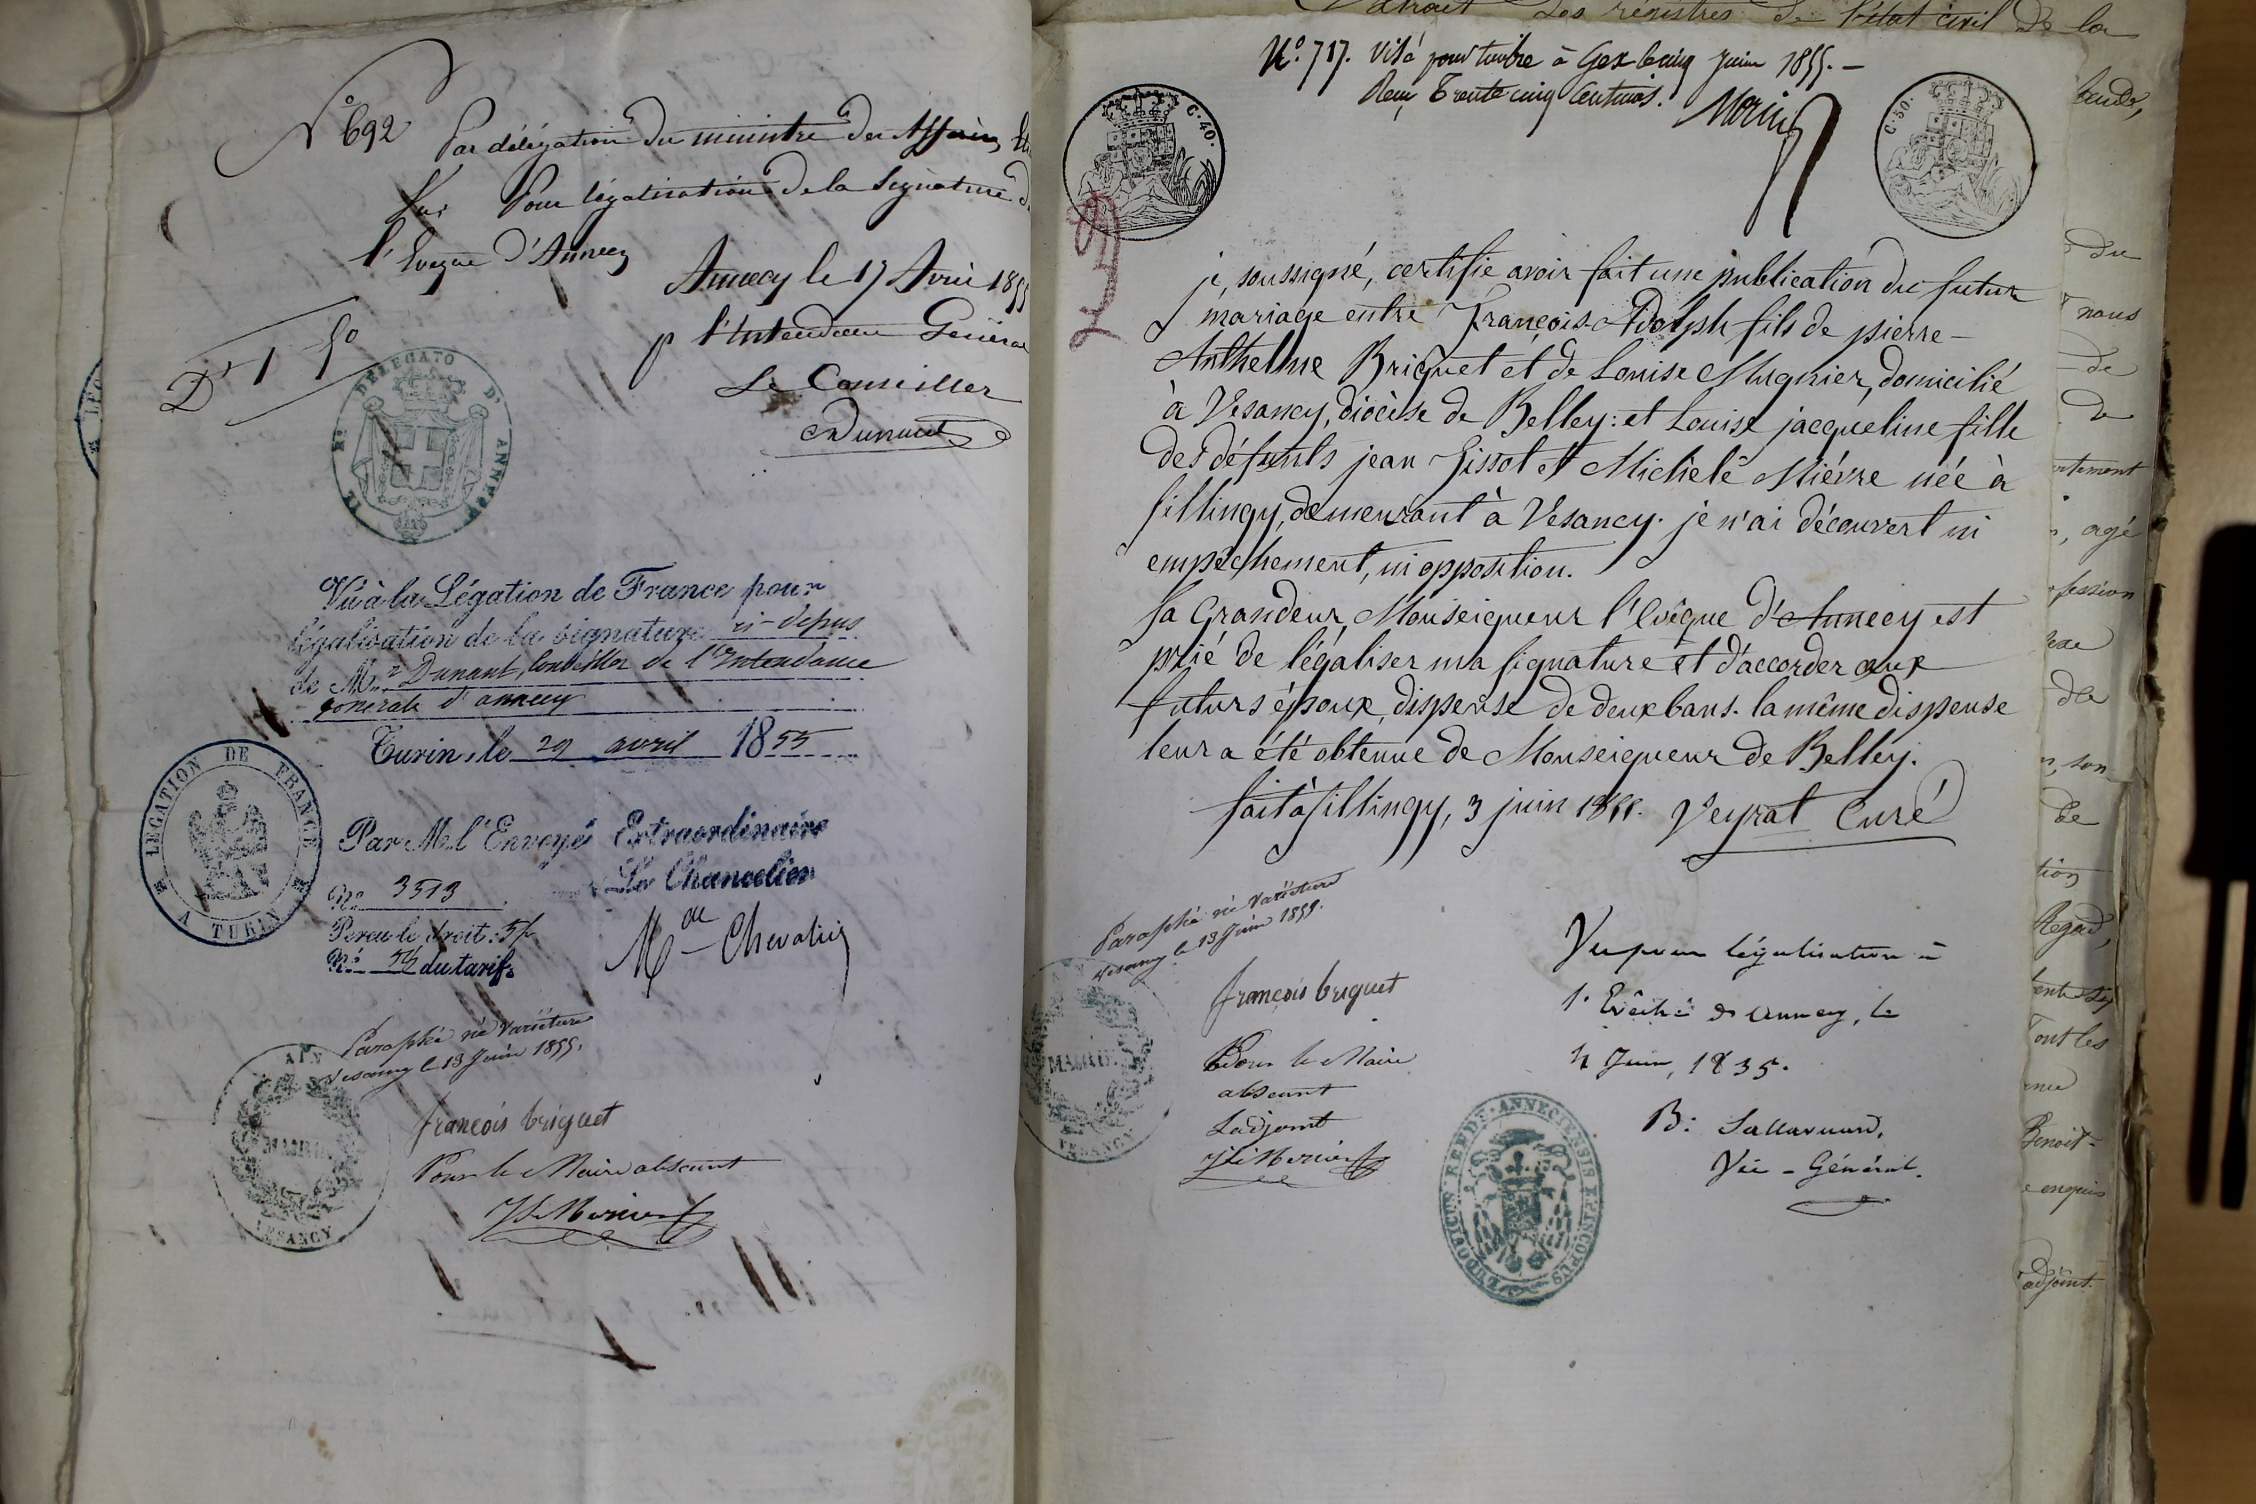 N° 692 Par délégation du ministre des Affaires
Pour légalisation de la Signature
l'Eveque d'Annecy
Annecy le 17 Avril 1855
D' 1 50
p l'Intendant General
Le Conseiller
Dunant
Rº DELEGATO D' ANNECY
Vu à la Légation de France pour
légalisation de la signature ci-dessus
de Mr. Dunant, Conseiller de l'Intendance
générale d'annecy
Turin, le 29 avril 1855
LEGATION DE FRANCE A TURIN
Par Mr. l'Envoyé Extraordinaire
Le Chancelier
No 3573
Perçu le droit: 5f
No 55 du tarif.
Chevalier
Paraphé ne Varietur
Vesancy le 13 Juin 1855.
AIN MAIRIE VESANCY
françois briquet
Pour le Maire absent
N.° 717. Visé pour timbre à Gex le cinq Juin 1855. —
Reçu Trente cinq Centimes. Morin
C. 40.
C. 50.
je, soussigné, certifie avoir fait une publication du futur
mariage entre François-Adolph fils de pierre-
Anthelme Briquet et de Louise Mugnier, domicilié
à Vesancy, diocèse de Belley: et Louise jacqueline fille
des défunts jean Tissot et Michele Mièvre née à
fillingy, demeurant à Vesancy. je n'ai découvert ni
empêchement, ni opposition.
Sa Grandeur, Monseigneur l'Evêque d'Annecy est
prié de légaliser ma signature et d'accorder aux
futurs époux, dispense de deux bans. la même dispense
leur a été obtenue de Monseigneur de Belley.
fait à fillingy, 3 juin 1855. Veyrat Curé
Paraphé ne Varietur
Vesancy le 13 Juin 1855.
AIN MAIRIE VESANCY
françois briquet
Pour le Maire
absent
Ladjoint
Vu pour légalisation à
l'Evêché d'Annecy, le
4 Juin, 1855.
B: Sallavuard,
Vic-Général.
LUDOVICUS RENDU ANNECIENSIS EPISCOPUS
Extrait des régistres de l'état civil de la
du
nous
de
de
agé
fession
de
son
de
tion
Regard,
Tout les
Benoit-
adjoint.